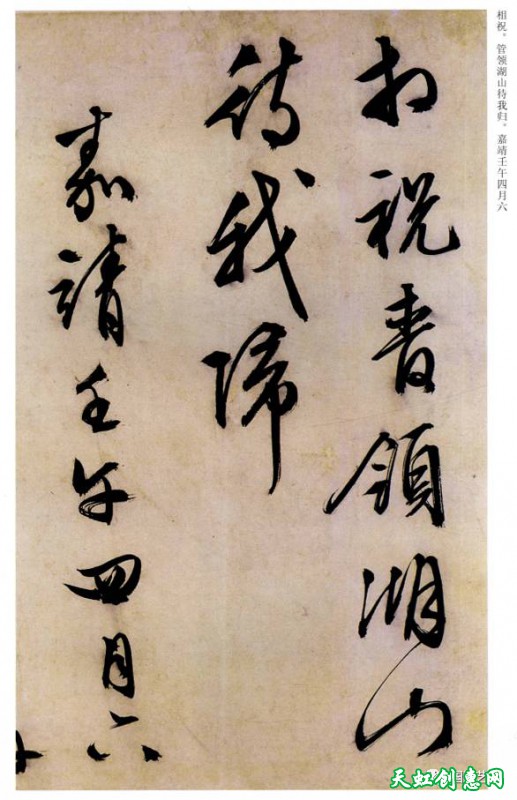 相祝。管领湖山待我归。嘉靖壬午四月六
相祝管領湖山
待我歸
嘉靖壬午四月六
天虹创惠网